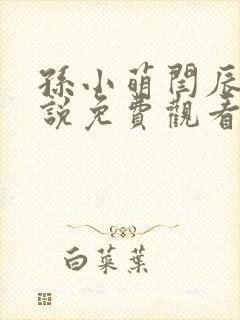 孫小萌閆辰
說免費觀看
白菜葉